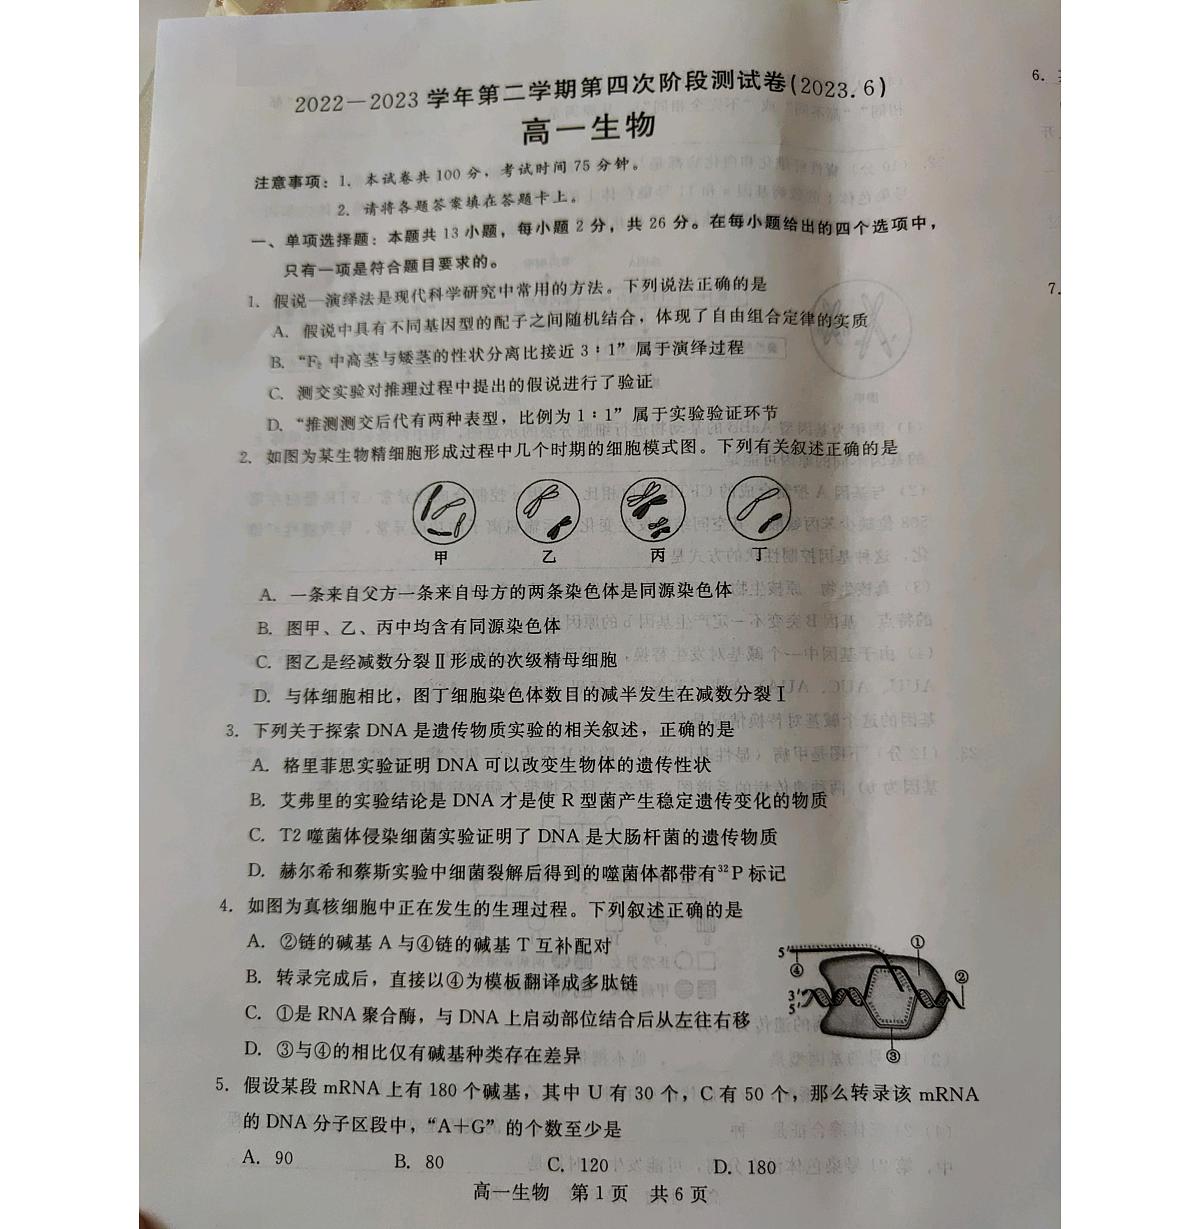 2022—2023 学年第二学期第四次阶段测试卷(2023.6)
高一生物
注意事项：1. 本试卷共 100 分，考试时间 75 分钟。
2. 请将各题答案填在答题卡上。
一、单项选择题：本题共 13 小题，每小题 2 分，共 26 分。在每小题给出的四个选项中，
只有一项是符合题目要求的。
1. 假说—演绎法是现代科学研究中常用的方法。下列说法正确的是
A. 假说中具有不同基因型的配子之间随机结合，体现了自由组合定律的实质
B. “F₂ 中高茎与矮茎的性状分离比接近 3∶1”属于演绎过程
C. 测交实验对推理过程中提出的假说进行了验证
D. “推测测交后代有两种表型，比例为 1∶1”属于实验验证环节
2. 如图为某生物精细胞形成过程中几个时期的细胞模式图。下列有关叙述正确的是
甲 乙 丙 丁
A. 一条来自父方一条来自母方的两条染色体是同源染色体
B. 图甲、乙、丙中均含有同源染色体
C. 图乙是经减数分裂Ⅱ形成的次级精母细胞
D. 与体细胞相比，图丁细胞染色体数目的减半发生在减数分裂Ⅰ
3. 下列关于探索 DNA 是遗传物质实验的相关叙述，正确的是
A. 格里菲思实验证明 DNA 可以改变生物体的遗传性状
B. 艾弗里的实验结论是 DNA 才是使 R 型菌产生稳定遗传变化的物质
C. T2 噬菌体侵染细菌实验证明了 DNA 是大肠杆菌的遗传物质
D. 赫尔希和蔡斯实验中细菌裂解后得到的噬菌体都带有³²P 标记
4. 如图为真核细胞中正在发生的生理过程。下列叙述正确的是
A. ②链的碱基 A 与④链的碱基 T 互补配对
B. 转录完成后，直接以④为模板翻译成多肽链
C. ①是 RNA 聚合酶，与 DNA 上启动部位结合后从左往右移
D. ③与④的相比仅有碱基种类存在差异
5′
④
①
②
3′
5′
③
5. 假设某段 mRNA 上有 180 个碱基，其中 U 有 30 个，C 有 50 个，那么转录该 mRNA
的 DNA 分子区段中，“A+G”的个数至少是
A. 90 B. 80 C. 120 D. 180
高一生物 第 1 页 共 6 页
6.
7.